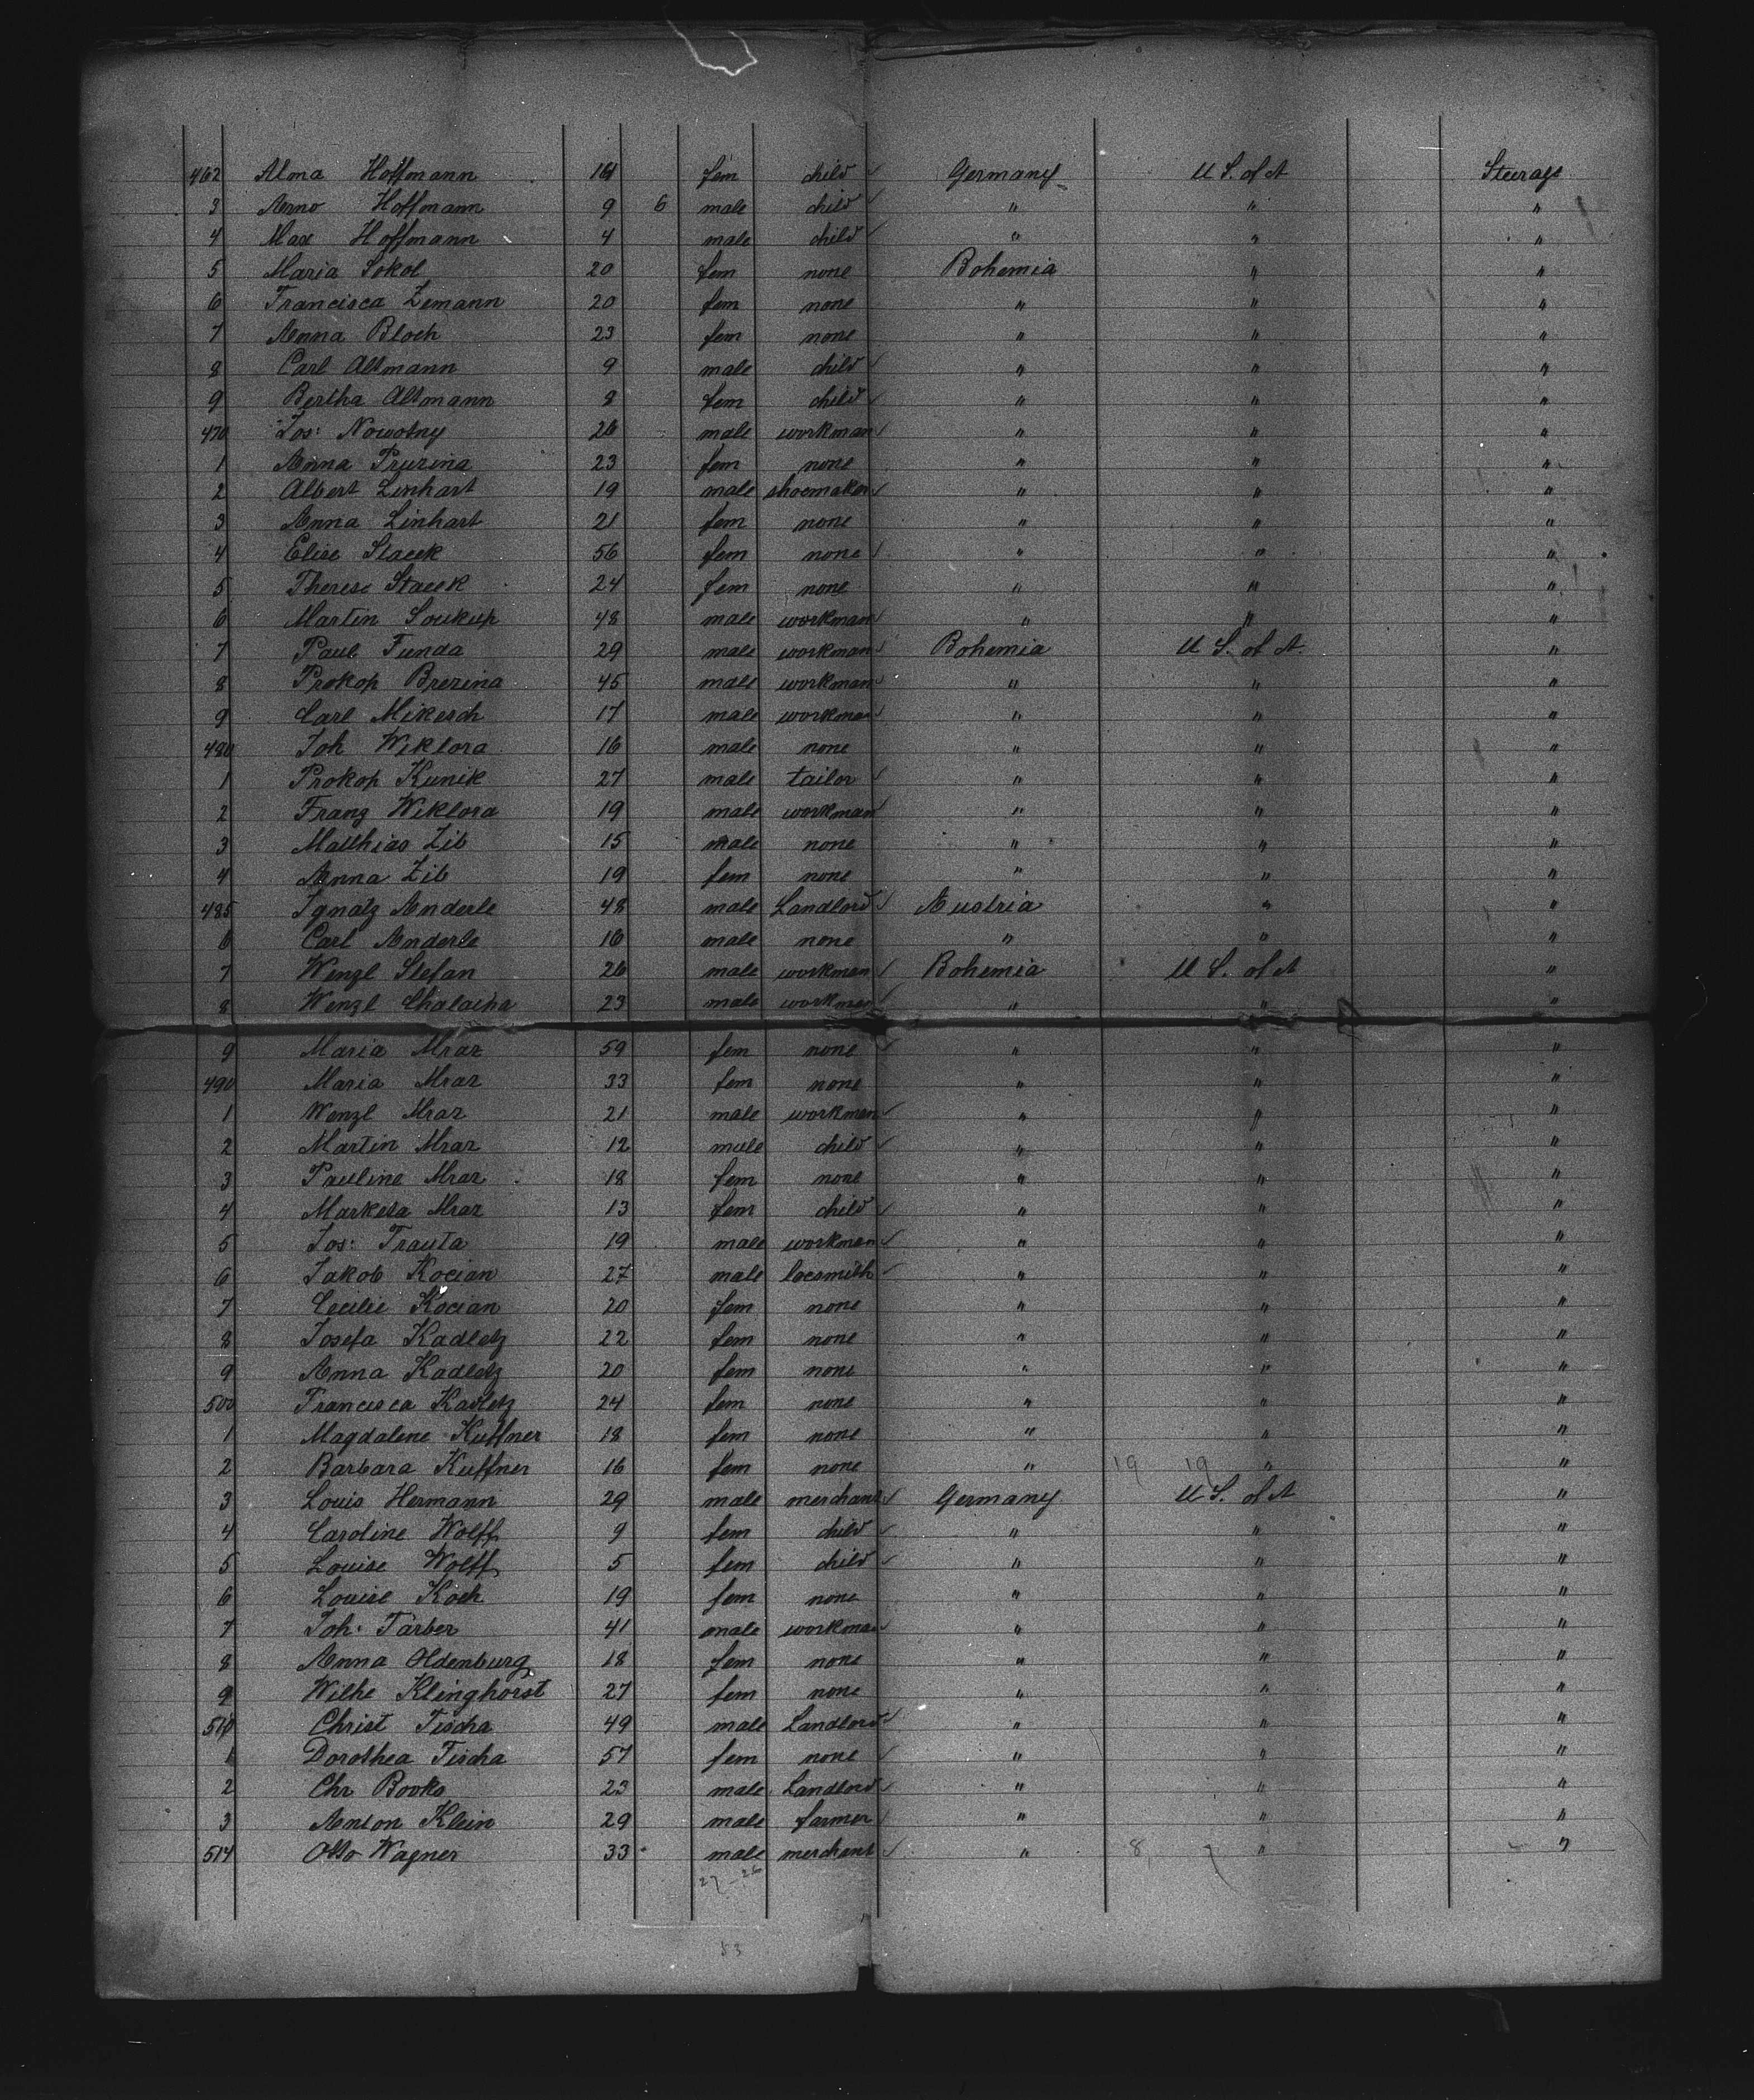 462 Alma Hoffmann fem child Germany U S. of A Steerage
3 Arno Hoffmann 9 6 male child " " "
4 Max Hoffmann 4 male child " " "
5 Maria Sokol 20 fem none Bohemia " "
6 Francisca Zemann 20 fem none " " "
7 Anna Bloch 23 fem none " " "
8 Carl Altmann 9 male child " " "
9 Bertha Altmann 8 fem child " " "
470 Jos: Nowotny 26 male workman " " "
1 Anna Pruzina 23 fem none " " "
2 Albert Linhart 19 male shoemaker " " "
3 Anna Linhart 21 fem none " " "
4 Elise Stacek 56 fem none " " "
5 Therese Stacek 24 fem none " " "
6 Martin Soukup 48 male workman " " "
7 Paul Funda 29 male workman Bohemia U S. of A. "
8 Prokop Brezina 45 male workman " " "
9 Carl Mikesch 17 male workman " " "
480 Joh Wiklora 16 male none " " "
1 Prokop Kunik 27 male tailor " " "
2 Franz Wiklora 19 male workman " " "
3 Matthias Zib 15 male none " " "
4 Anna Zib 19 fem none " " "
485 Ignatz Anderle 48 male Landlord Austria " "
6 Carl Anderle 16 male none " " "
7 Wenzl Stefan 26 male workman Bohemia U S. of A "
8 Wenzl 23 male workman " " "
9 Maria Mraz 59 fem none " " "
490 Maria Mraz 33 fem none " " "
1 Wenzl Mraz 21 male workman " " "
2 Martin Mraz 12 male child " " "
3 Pauline Mraz 18 fem none " " "
4 Marketa Mraz 13 fem child " " "
5 Jos: Trauta 19 male workman " " "
6 Jakob Kocian 27 male locsmith " " "
7 Cecilie Kocian 20 fem none " " "
8 Josefa Kadletz 22 fem none " " "
9 Anna Kadletz 20 fem none " " "
500 Francisca Kadletz 24 fem none " " "
1 Magdalene Kuffner 18 fem none " " "
2 Barbara Kuffner 16 fem none " 19 19 " "
3 Louis Hermann 29 male merchant Germany U S. of A "
4 Caroline Wolff 9 fem child " " "
5 Louise Wolff 5 fem child " " "
6 Louise Koch 19 fem none " " "
7 Joh. Farber 41 male workman " " "
8 Anna Oldenburg 18 fem none " " "
9 Wilhe Klinghorst 27 fem none " " "
510 Christ Tischa 49 male Landlord " " "
1 Dorothea Tischa 57 fem none " " "
2 Chr Booko 23 male Landlord " " "
3 Anton Klein 29 male farmer " " "
514 Otto Wagner 33 male merchant " 8, 7 " "
27-26
53